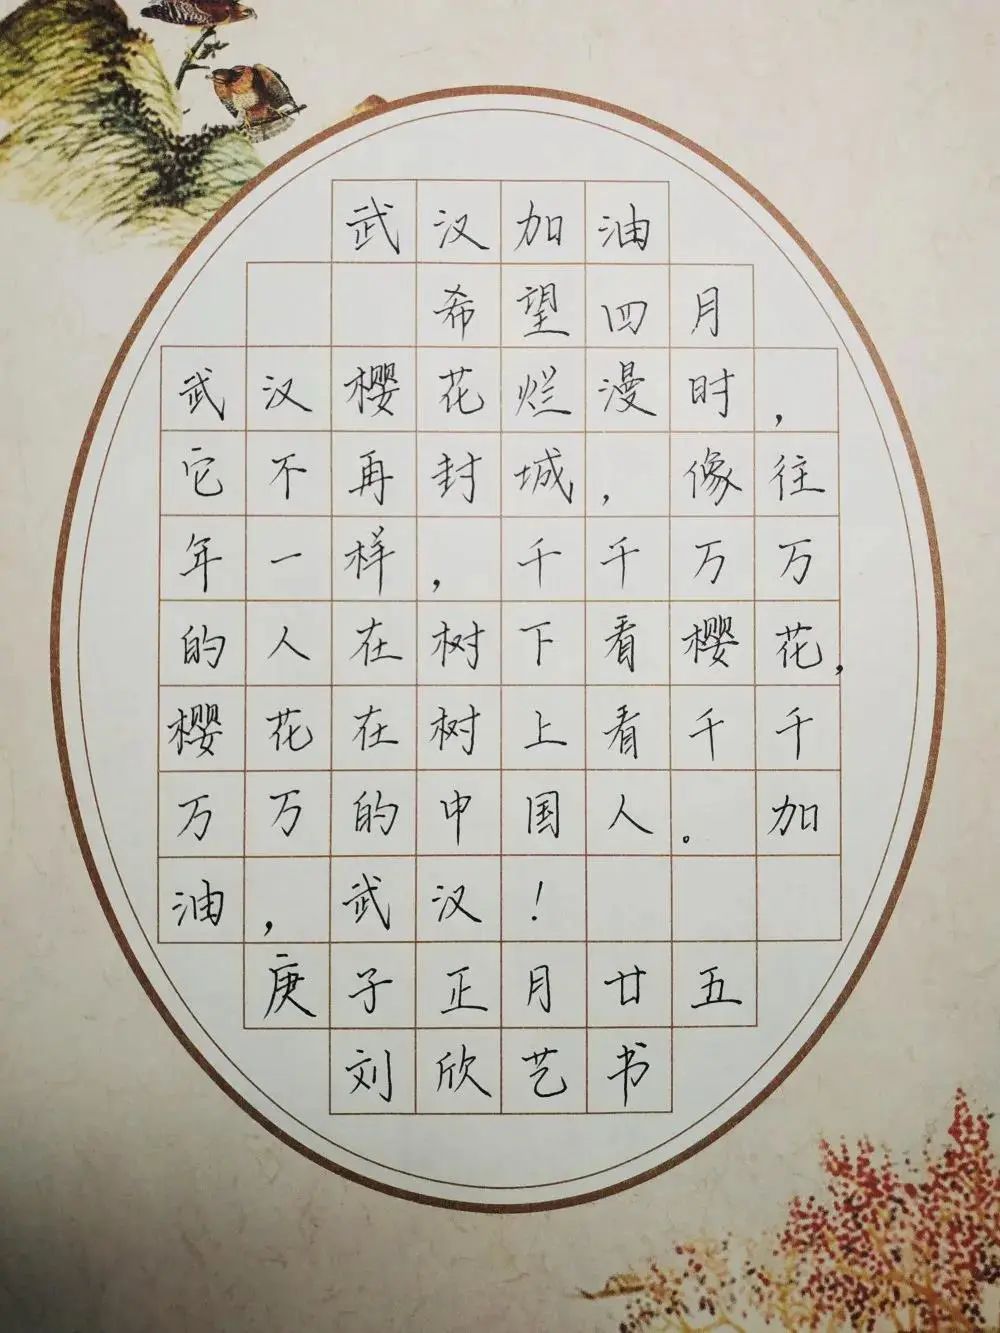 武汉加油
希望四月
武汉樱花烂漫时，
它不再封城，像往
年一样，千千万万
的人在树下看樱花，
樱花在树上看千千
万万的中国人。加
油，武汉！
庚子正月廿五
刘欣艺书